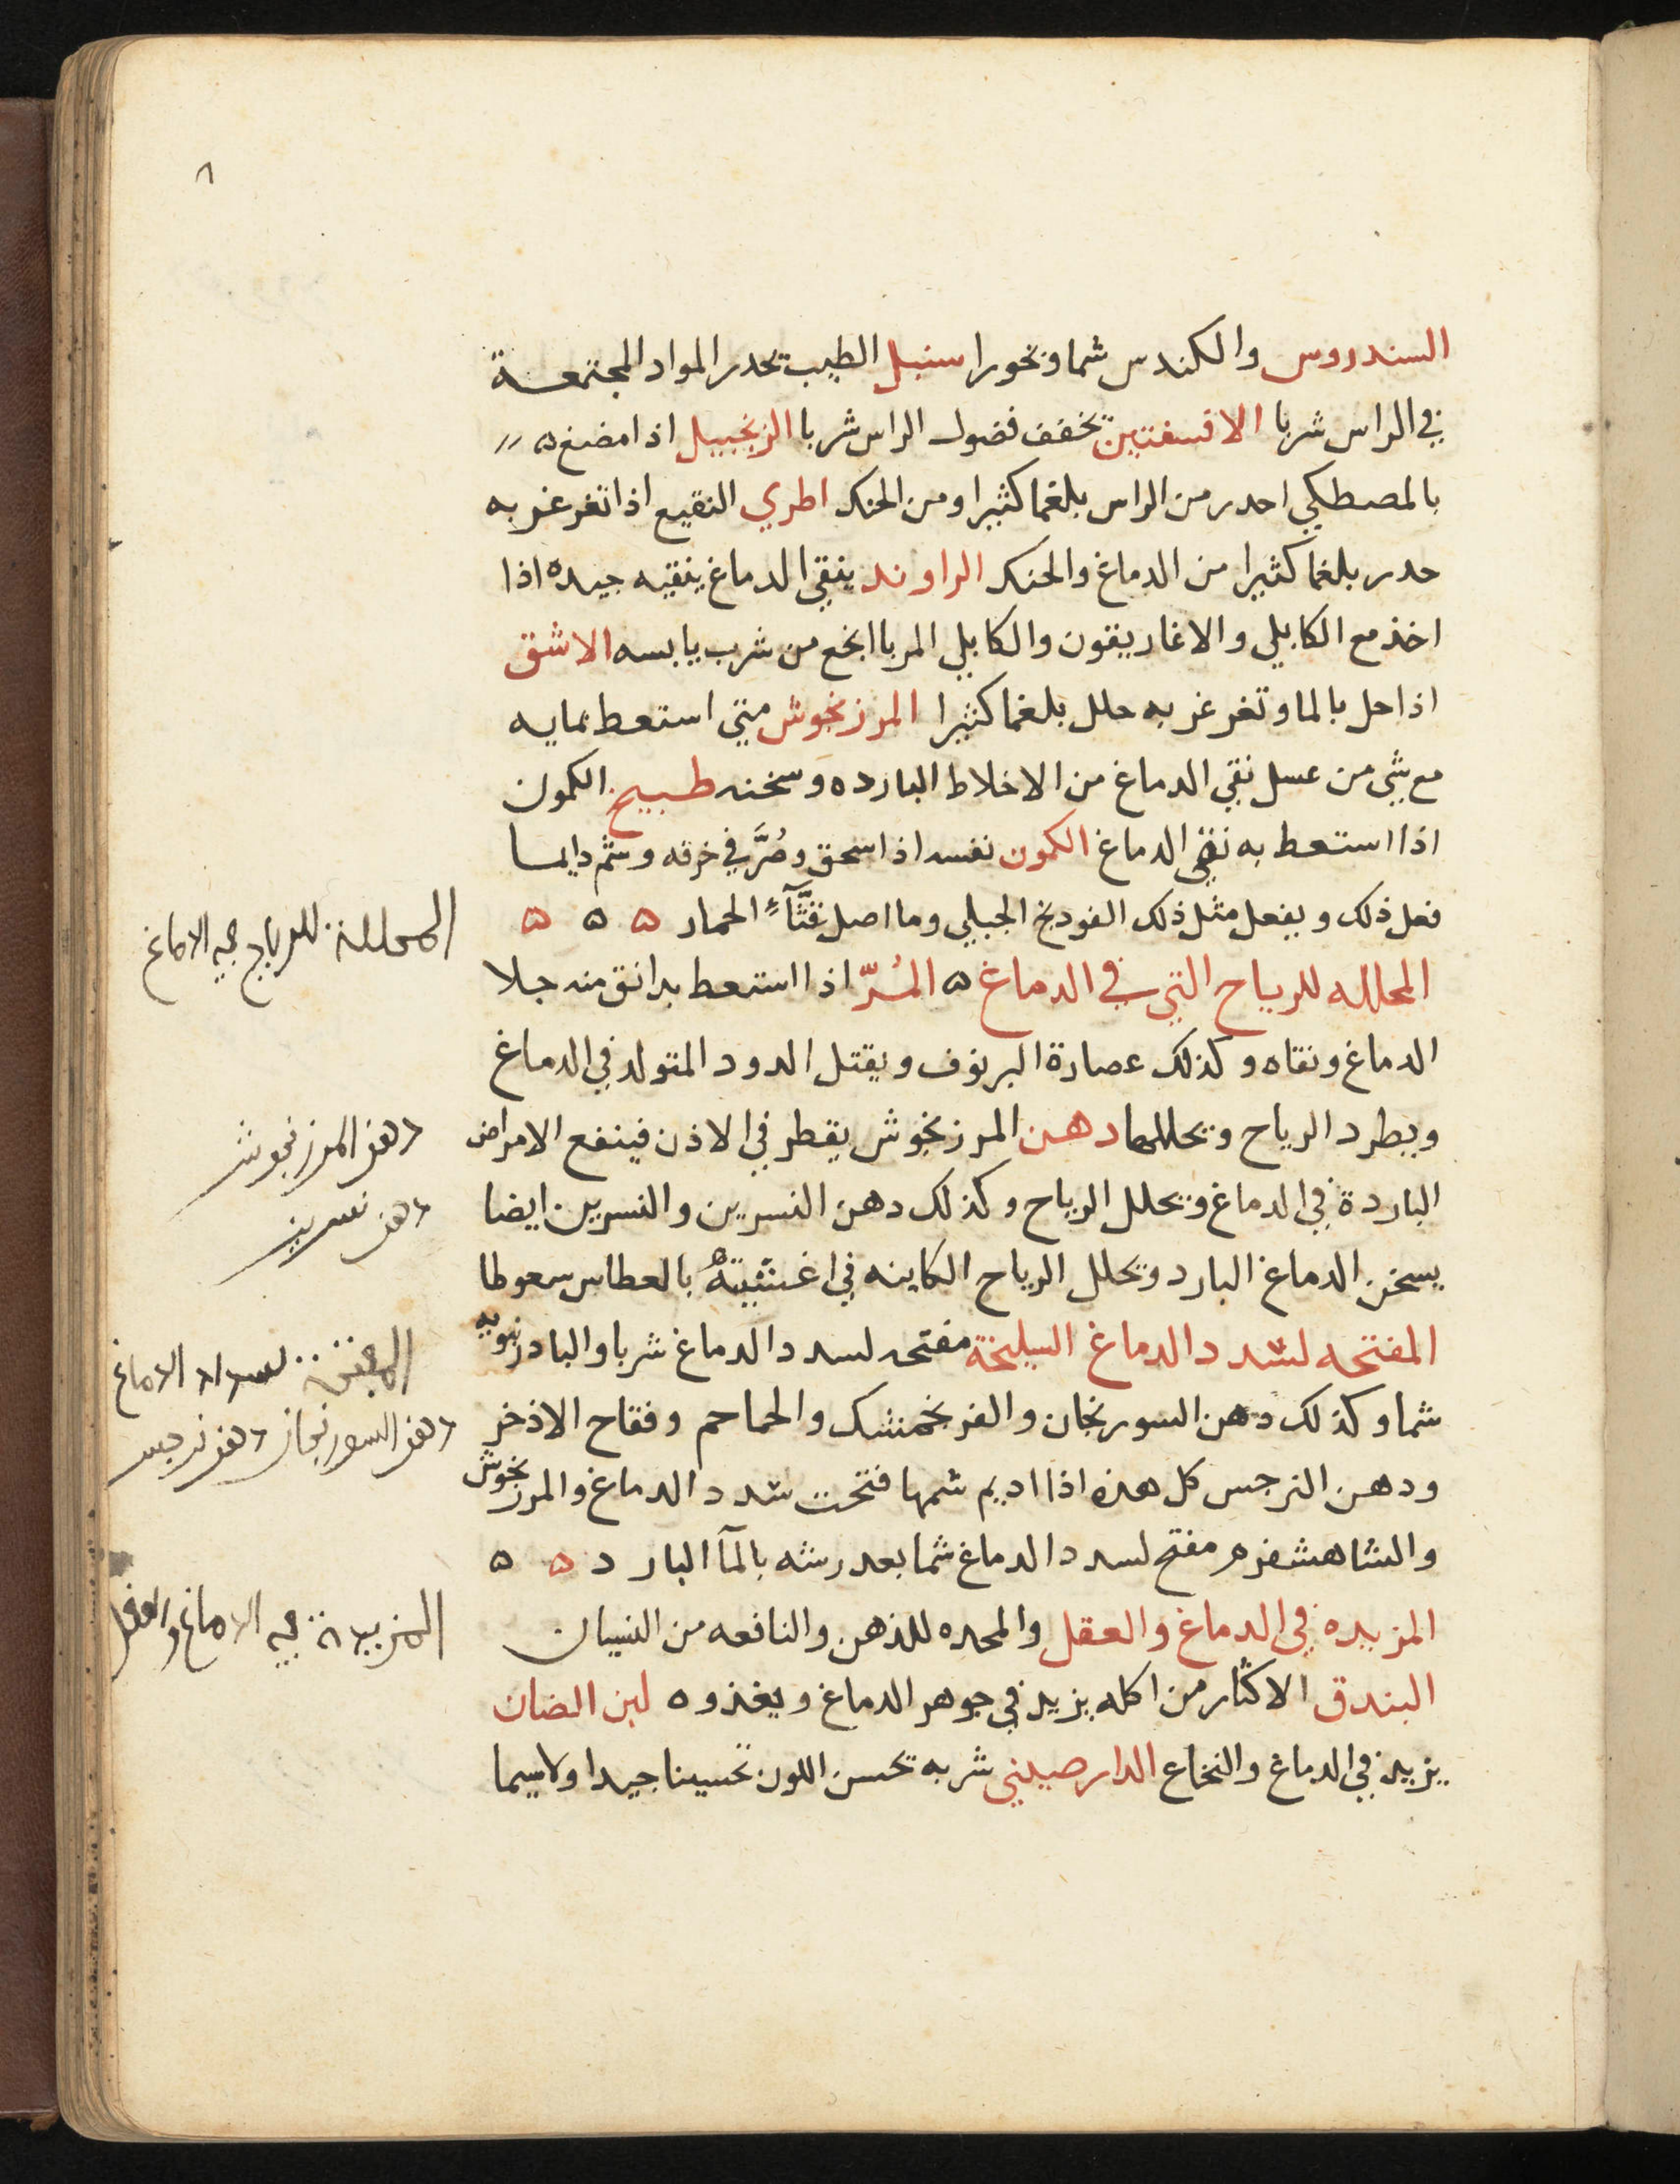 ٨
السندروس والكندس شما وبخورا سنبل الطيب تحدر المواد المجتمعة
في الراس شربا الافسفتين تخفف فضول الراس شربا الزنجبيل اذا مضغ ه
بالمصطكي احدر من الراس بلغما كثيرا ومن الحنك اطري النقيع اذا تغرغر به
حدر بلغما كثيرا من الدماغ والحنك الراوند ينقي الدماغ ينقيه جيده اذا
اخذ مع الكابلي والاغاريقون والكابلي المربا انجع من شرب يابسه الاشق
اذا حل بالما وتغرغر به حلل بلغما كثيرا المرزنجوش متي استعط بمايه
مع شي من عسل نقي الدماغ من الاخلاط البارده وسخنه طبيخ الكمون
اذا استعط به نقي الدماغ الكمون نفسه اذا سحق وصُرَّ في خرقه وشم دايما
فعل ذلك ويفعل مثل ذلك الفودنج الجبلي وما اصل قثَّآءِ الحمار ه ه ه
المحلله للرياح التي في الدماغ ه المُرّ اذا استعط بدانق منه جلا
الدماغ ونقاه وكذلك عصارة البرنوف ويقتل الدود المتولد في الدماغ
ويطرد الرياح ويحللها دهن المرزنجوش يقطر في الاذن فينفع الامراض
الباردة في الدماغ ويحلل الرياح وكذلك دهن النسرين والنسرين ايضا
يسخن الدماغ البارد ويحلل الرياح الكاينه في اغشيته بالعطاس سعوطا
المفتحه لسدد الدماغ السليخة مفتحه لسدد الدماغ شربا والبادرنبويه
شما وكذلك دهن السورنجان والفرنجمشك والحماحم وفقاح الاذخر
ودهن النرجس كل هذه اذا اديم شمها فتحت سدد الدماغ والمرزنجوش
والشاهشفرم مفتح لسدد الدماغ شما بعد رشه بالمآ البارد ه ه
المزيده في الدماغ والعقل والمحده للذهن والنافعه من النسيان
البندق الاكثار من اكله يزيد في جوهر الدماغ ويغذوه لبن الضان
يزيد في الدماغ والنخاع الدارصيني شربه تحسن اللون تحسينا جيدا ولاسيما
المحللة للرياح في الدماغ
دهن المرزنجوش
دهن نسرين
المفتحة لسداد الدماغ
دهن السورنجان دهن نرجس
المزيدة في الدماغ والعقل